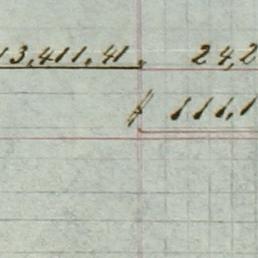 13,411.41. 24,2
$ 111,1